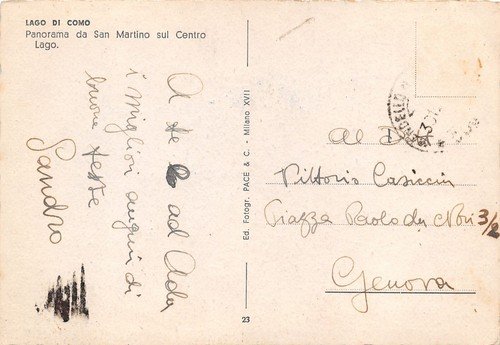 LAGO DI COMO
Panorama da San Martino sul Centro
Lago.
A te e ad Ada
i migliori auguri di
buone feste
Sandro
Ed. Fotogr. PACE & C. - Milano XVII
23
Al
Vittorio
Piazza Paolo da Novi 3/2
Genova